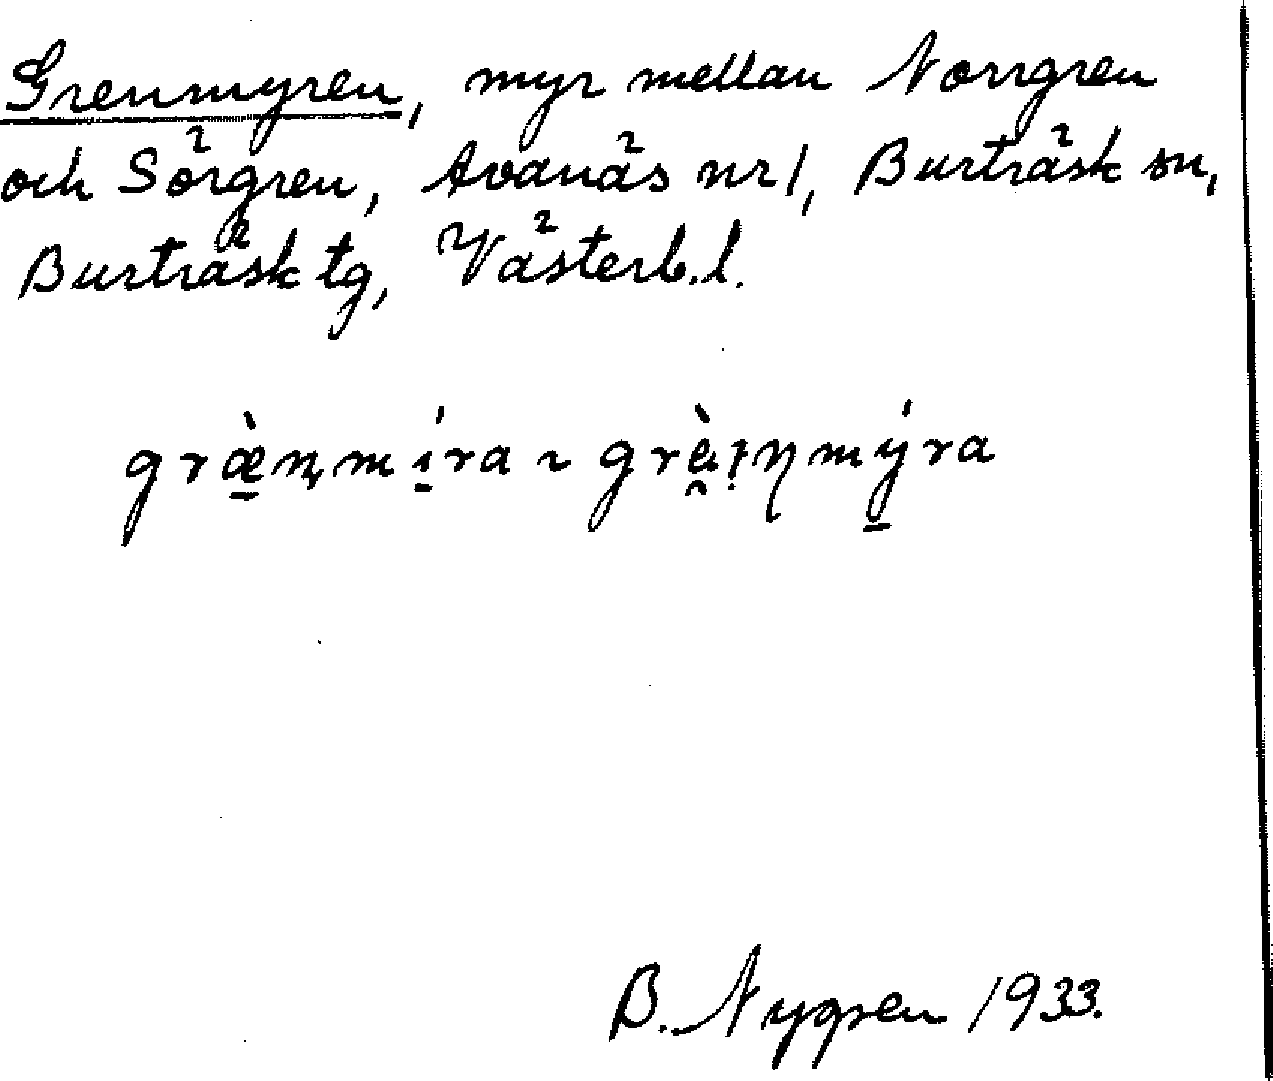 Grenmyren, myr mellan Norrgren
och Sörgren, Avanäs nr 1, Burträsk sn,
Burträsk tg, Västerb. l.
græ̠̀n̥mí̠ra ~ grè̯ɪ̣ŋmý̠ra
B. Nygren 1933.